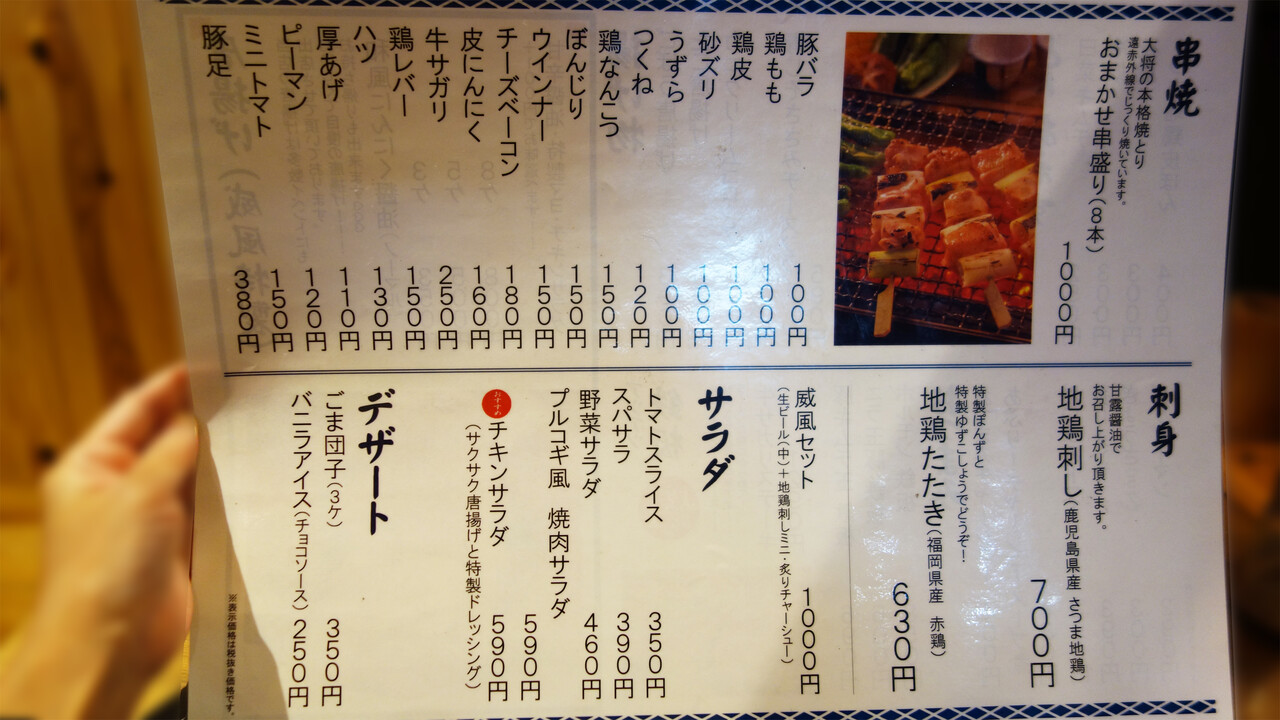 串焼
大将の本格焼とり
遠赤外線でじっくり焼いています。
おまかせ串盛り(8本) 1000円
豚バラ 100円
鶏もも 100円
鶏皮 100円
砂ズリ 100円
うずら 100円
つくね 120円
鶏なんこつ 150円
ぼんじり 150円
ウインナー 150円
チーズベーコン 180円
皮にんにく 160円
牛サガリ 250円
鶏レバー 150円
ハツ 130円
厚あげ 110円
ピーマン 120円
ミニトマト 150円
豚足 380円
刺身
甘露醤油で
お召し上がり頂きます。
地鶏刺し(鹿児島県産 さつま地鶏) 700円
特製ぽんずと
特製ゆずこしょうでどうぞ!
地鶏たたき(福岡県産 赤鶏) 630円
威風セット 1000円
(生ビール(中)+地鶏刺しミニ・炙りチャーシュー)
サラダ
トマトスライス 350円
スパサラ 390円
野菜サラダ 460円
プルコギ風 焼肉サラダ 590円
おすすめ チキンサラダ 590円
(サクサク唐揚げと特製ドレッシング)
デザート
ごま団子(3ケ) 350円
バニラアイス(チョコソース) 250円
※表示価格は税抜き価格です。